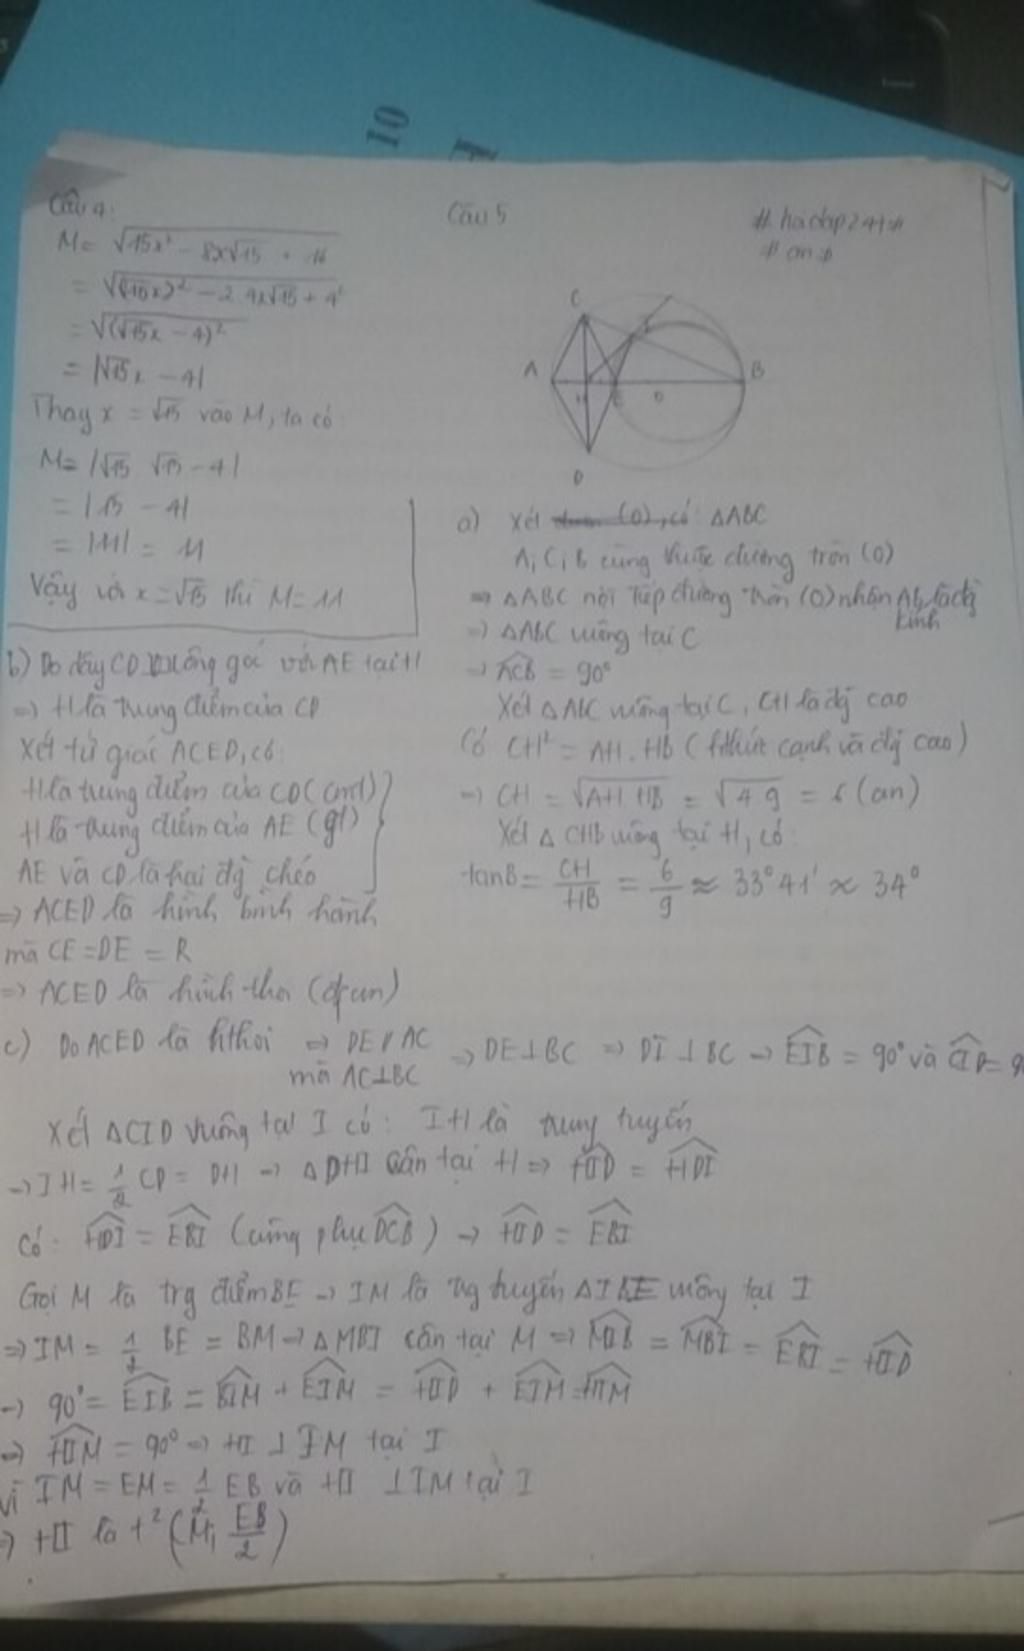 10
Câu 4:
M = √15x² - 8x√15 + 16
= √(√15x)² - 2.4x√15 + 4²
= √(√15x - 4)²
= |√15x - 4|
Thay x = √15 vào M, ta có:
M = |√15 √15 - 4|
= |15 - 4|
= |11| = 11
Vậy với x = √15 thì M = 11
Câu 5
#hoidap247#
#an#
C
A H E O B
D
a) Xét (O), có: ΔABC
A, C, B cùng thuộc đường tròn (O)
=> ΔABC nội tiếp đường tròn (O) nhận AB là đg kính
=> ΔABC vuông tại C
=> ACB = 90°
Xét ΔABC vuông tại C, CH là đg cao
Có CH² = AH.HB (hthức cạnh và đg cao)
=> CH = √AH.HB = √4.9 = 6 (cm)
Xét ΔCHB vuông tại H, có:
tanB = CH/HB = 6/9 ≈ 33°41' ≈ 34°
b) Do dây CD vuông góc với AE tại H
=> H là trung điểm của CD
Xét tứ giác ACED, có:
H là trung điểm của CD (cmt)
H là trung điểm của AE (gt)
AE và CD là hai đg chéo
=> ACED là hình bình hành
mà CE = DE = R
=> ACED là hình thoi (đpcm)
c) Do ACED là hthoi => DE // AC
mà AC⊥BC
=> DE⊥BC => DI ⊥ BC => EIB = 90° và CID = 9
Xét ΔCID vuông tại I có: IH là trung tuyến
=> IH = 1/2 CD = DH => ΔDHI cân tại H => HID = HDI
Có: HDI = EBI (cùng phụ DCB) => HID = EBI
Gọi M là trg điểm BE => IM là trg tuyến ΔIBE vuông tại I
=> IM = 1/2 BE = BM => ΔMBI cân tại M => MIB = MBI = EBI = HID
=> 90° = EIB = BIM + EIM = HID + EIM = HIM
=> HIM = 90° => HI ⊥ IM tại I
vì IM = EM = 1/2 EB và HI ⊥ IM tại I
=> HI là t² (M, EB/2)